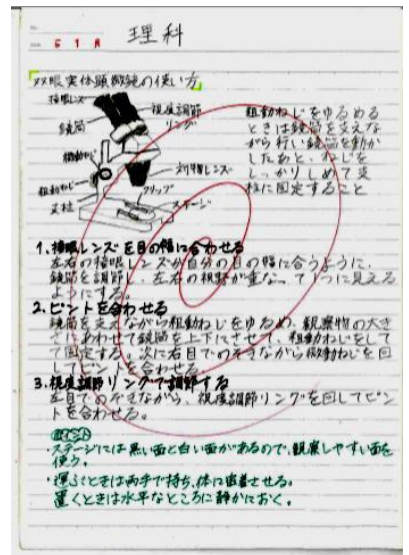 理科
5 1 月
双眼実体顕微鏡の使い方
接眼レンズ
視度調節
リング
鏡筒
微動ねじ
対物レンズ
粗動ねじ
クリップ
支柱
ステージ
粗動ねじをゆるめる
ときは鏡筒を支えな
がら行い鏡筒を動か
したあと、ねじを
しっかりしめて支
柱に固定すること
1.接眼レンズを目の幅に合わせる
左右の接眼レンズが自分の目の幅に合うように、
鏡筒を調節し、左右の視野が重なって1つに見える
ようにする。
2.ピントを合わせる
鏡筒を支えながら粗動ねじをゆるめ、観察物の大き
さにあわせて鏡筒を上下にさせて、粗動ねじをして
て固定する。次に右目でのぞきながら微動ねじを回
してピントを合わせる。
3.視度調節リングで調節する
左目でのぞきながら、視度調節リングを回してピン
トを合わせる。
ポイント
・ステージには黒い面と白い面があるので、観察しやすい面を
使う。
・運ぶときは両手で持ち、体に密着させる。
置くときは水平なところに静かにおく。